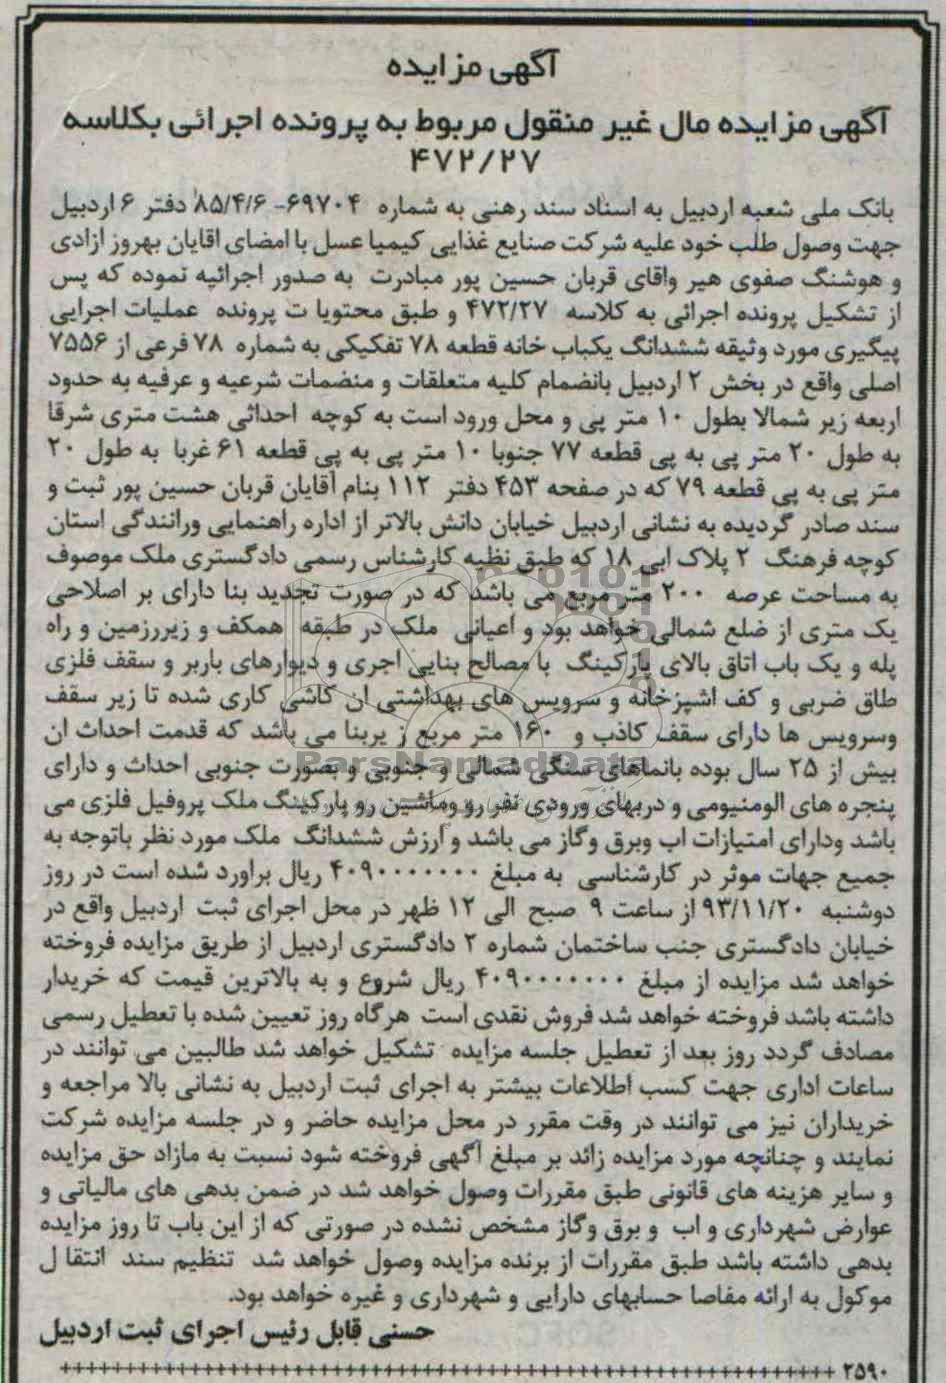 آگهی مزایده
آگهی مزایده مال غیر منقول مربوط به پرونده اجرائی بکلاسه
۴۷۲/۲۷
بانک ملی شعبه اردبیل به استاد سند رهنی به شماره ۶۹۷۰۴- ۸۵/۴/۶ دفتر ۶ اردبیل
جهت وصول طلب خود علیه شرکت صنایع غذایی کیمیا عسل با امضای اقایان بهروز ازادی
و هوشنگ صفوی هیر واقای قربان حسین پور مبادرت به صدور اجرائیه نموده که پس
از تشکیل پرونده اجرائی به کلاسه ۴۷۲/۲۷ و طبق محتویا ت پرونده عملیات اجرایی
پیگیری مورد وثیقه ششدانگ یکباب خانه قطعه ۷۸ تفکیکی به شماره ۷۸ فرعی از ۷۵۵۶
اصلی واقع در بخش ۲ اردبیل بانضمام کلیه متعلقات و منضمات شرعیه و عرفیه به حدود
اربعه زیر شمالا بطول ۱۰ متر پی و محل ورود است به کوچه احداثی هشت متری شرقا
به طول ۲۰ متر پی به پی قطعه ۷۷ جنوبا ۱۰ متر پی به پی قطعه ۶۱ غربا به طول ۲۰
متر پی به پی قطعه ۷۹ که در صفحه ۴۵۳ دفتر ۱۱۲ بنام آقایان قربان حسین پور ثبت و
سند صادر گردیده به نشانی اردبیل خیابان دانش بالاتر از اداره راهنمایی ورانندگی استان
کوچه فرهنگ ۲ پلاک ابی ۱۸ که طبق نظیه کارشناس رسمی دادگستری ملک موصوف
به مساحت عرصه ۲۰۰ متر مربع می باشد که در صورت تجدید بنا دارای بر اصلاحی
یک متری از ضلع شمالی خواهد بود و اعیانی ملک در طبقه همکف و زیررزمین و راه
پله و یک باب اتاق بالای پارکینگ با مصالح بنایی اجری و دیوارهای باربر و سقف فلزی
طاق ضربی و کف اشپزخانه و سرویس های بهداشتی ان کاشی کاری شده تا زیر سقف
وسرویس ها دارای سقف کاذب و ۱۶۰ متر مربع ز یربنا می باشد که قدمت احداث ان
بیش از ۲۵ سال بوده بانماهای سنگی شمالی و جنوبی و بصورت جنوبی احداث و دارای
پنجره های الومنیومی و دربهای ورودی نفر رو وماشین رو پارکینگ ملک پروفیل فلزی می
باشد ودارای امتیازات اب وبرق وگاز می باشد و ارزش ششدانگ ملک مورد نظر باتوجه به
جمیع جهات موثر در کارشناسی به مبلغ ۴۰۹۰۰۰۰۰۰۰ ریال براورد شده است در روز
دوشنبه ۹۳/۱۱/۲۰ از ساعت ۹ صبح الی ۱۲ ظهر در محل اجرای ثبت اردبیل واقع در
خیابان دادگستری جنب ساختمان شماره ۲ دادگستری اردبیل از طریق مزایده فروخته
خواهد شد مزایده از مبلغ ۴۰۹۰۰۰۰۰۰۰ ریال شروع و به بالاترین قیمت که خریدار
داشته باشد فروخته خواهد شد فروش نقدی است هرگاه روز تعیین شده با تعطیل رسمی
مصادف گردد روز بعد از تعطیل جلسه مزایده تشکیل خواهد شد طالبین می توانند در
ساعات اداری جهت کسب اطلاعات بیشتر به اجرای ثبت اردبیل به نشانی بالا مراجعه و
خریداران نیز می توانند در وقت مقرر در محل مزایده حاضر و در جلسه مزایده شرکت
نمایند و چنانچه مورد مزایده زائد بر مبلغ آگهی فروخته شود نسبت به مازاد حق مزایده
و سایر هزینه های قانونی طبق مقررات وصول خواهد شد در ضمن بدهی های مالیاتی و
عوارض شهرداری و اب و برق وگاز مشخص نشده در صورتی که از این باب تا روز مزایده
بدهی داشته باشد طبق مقررات از برنده مزایده وصول خواهد شد تنظیم سند انتقا ل
موکول به ارائه مفاصا حسابهای دارایی و شهرداری و غیره خواهد بود.
حسنی قابل رئیس اجرای ثبت اردبیل
۲۵۹۰
ParsNamadData